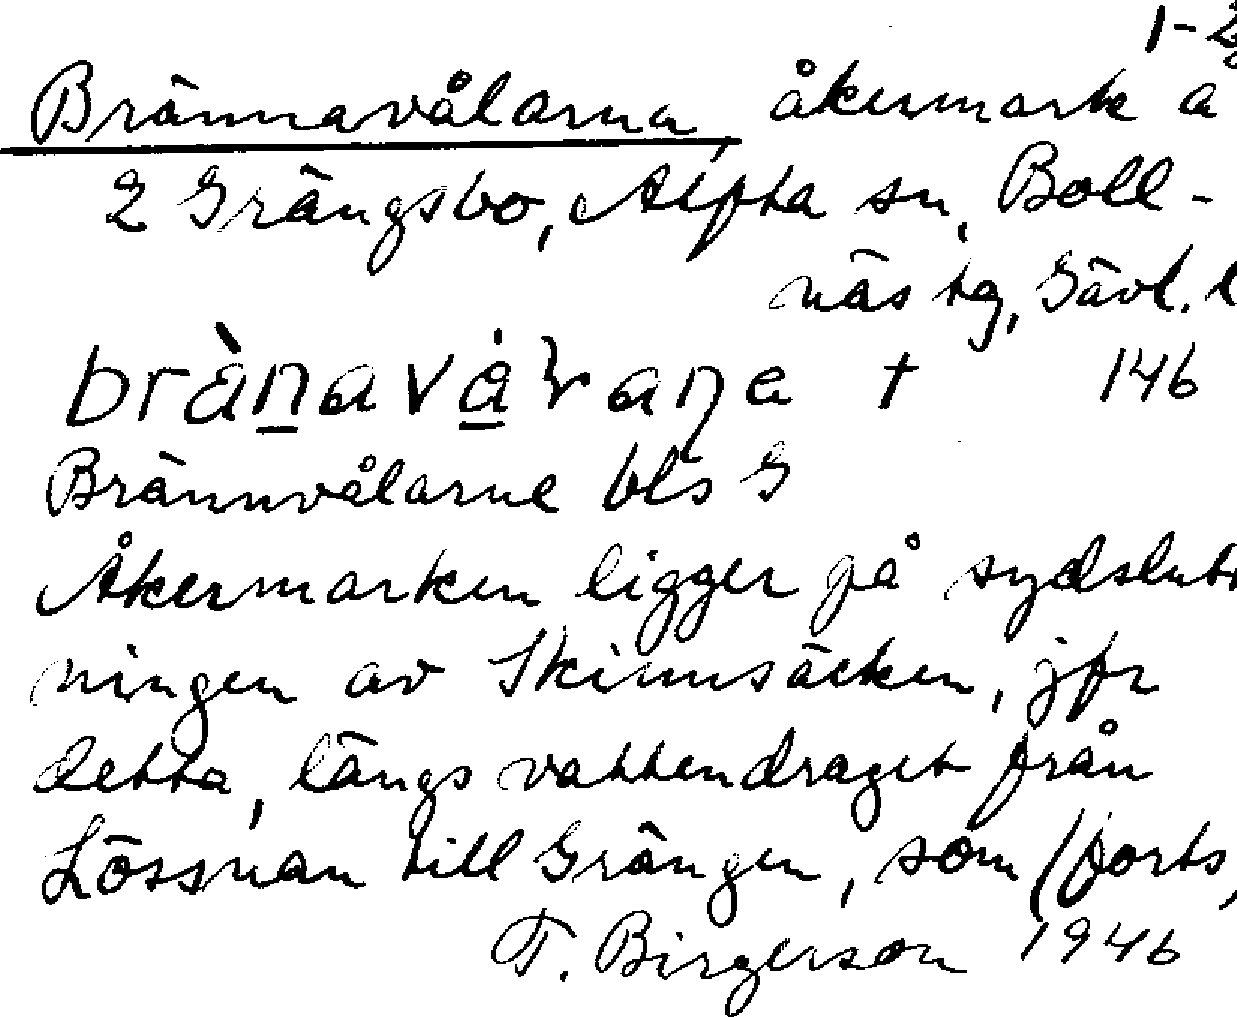 1-2
Brännavålarna, åkermark å
2 Grängsbo, Alfta sn, Boll-
näs tg, Gävl. l
brànavá̊ɽaṇa + 146
Brännvålarne bls G
Åkermarken ligger på sydslutt
ningen av Skinnsäcken, jfr
detta, längs vattendraget från
Lössnan till Grängen, som (forts,
F. Birgerson 1946